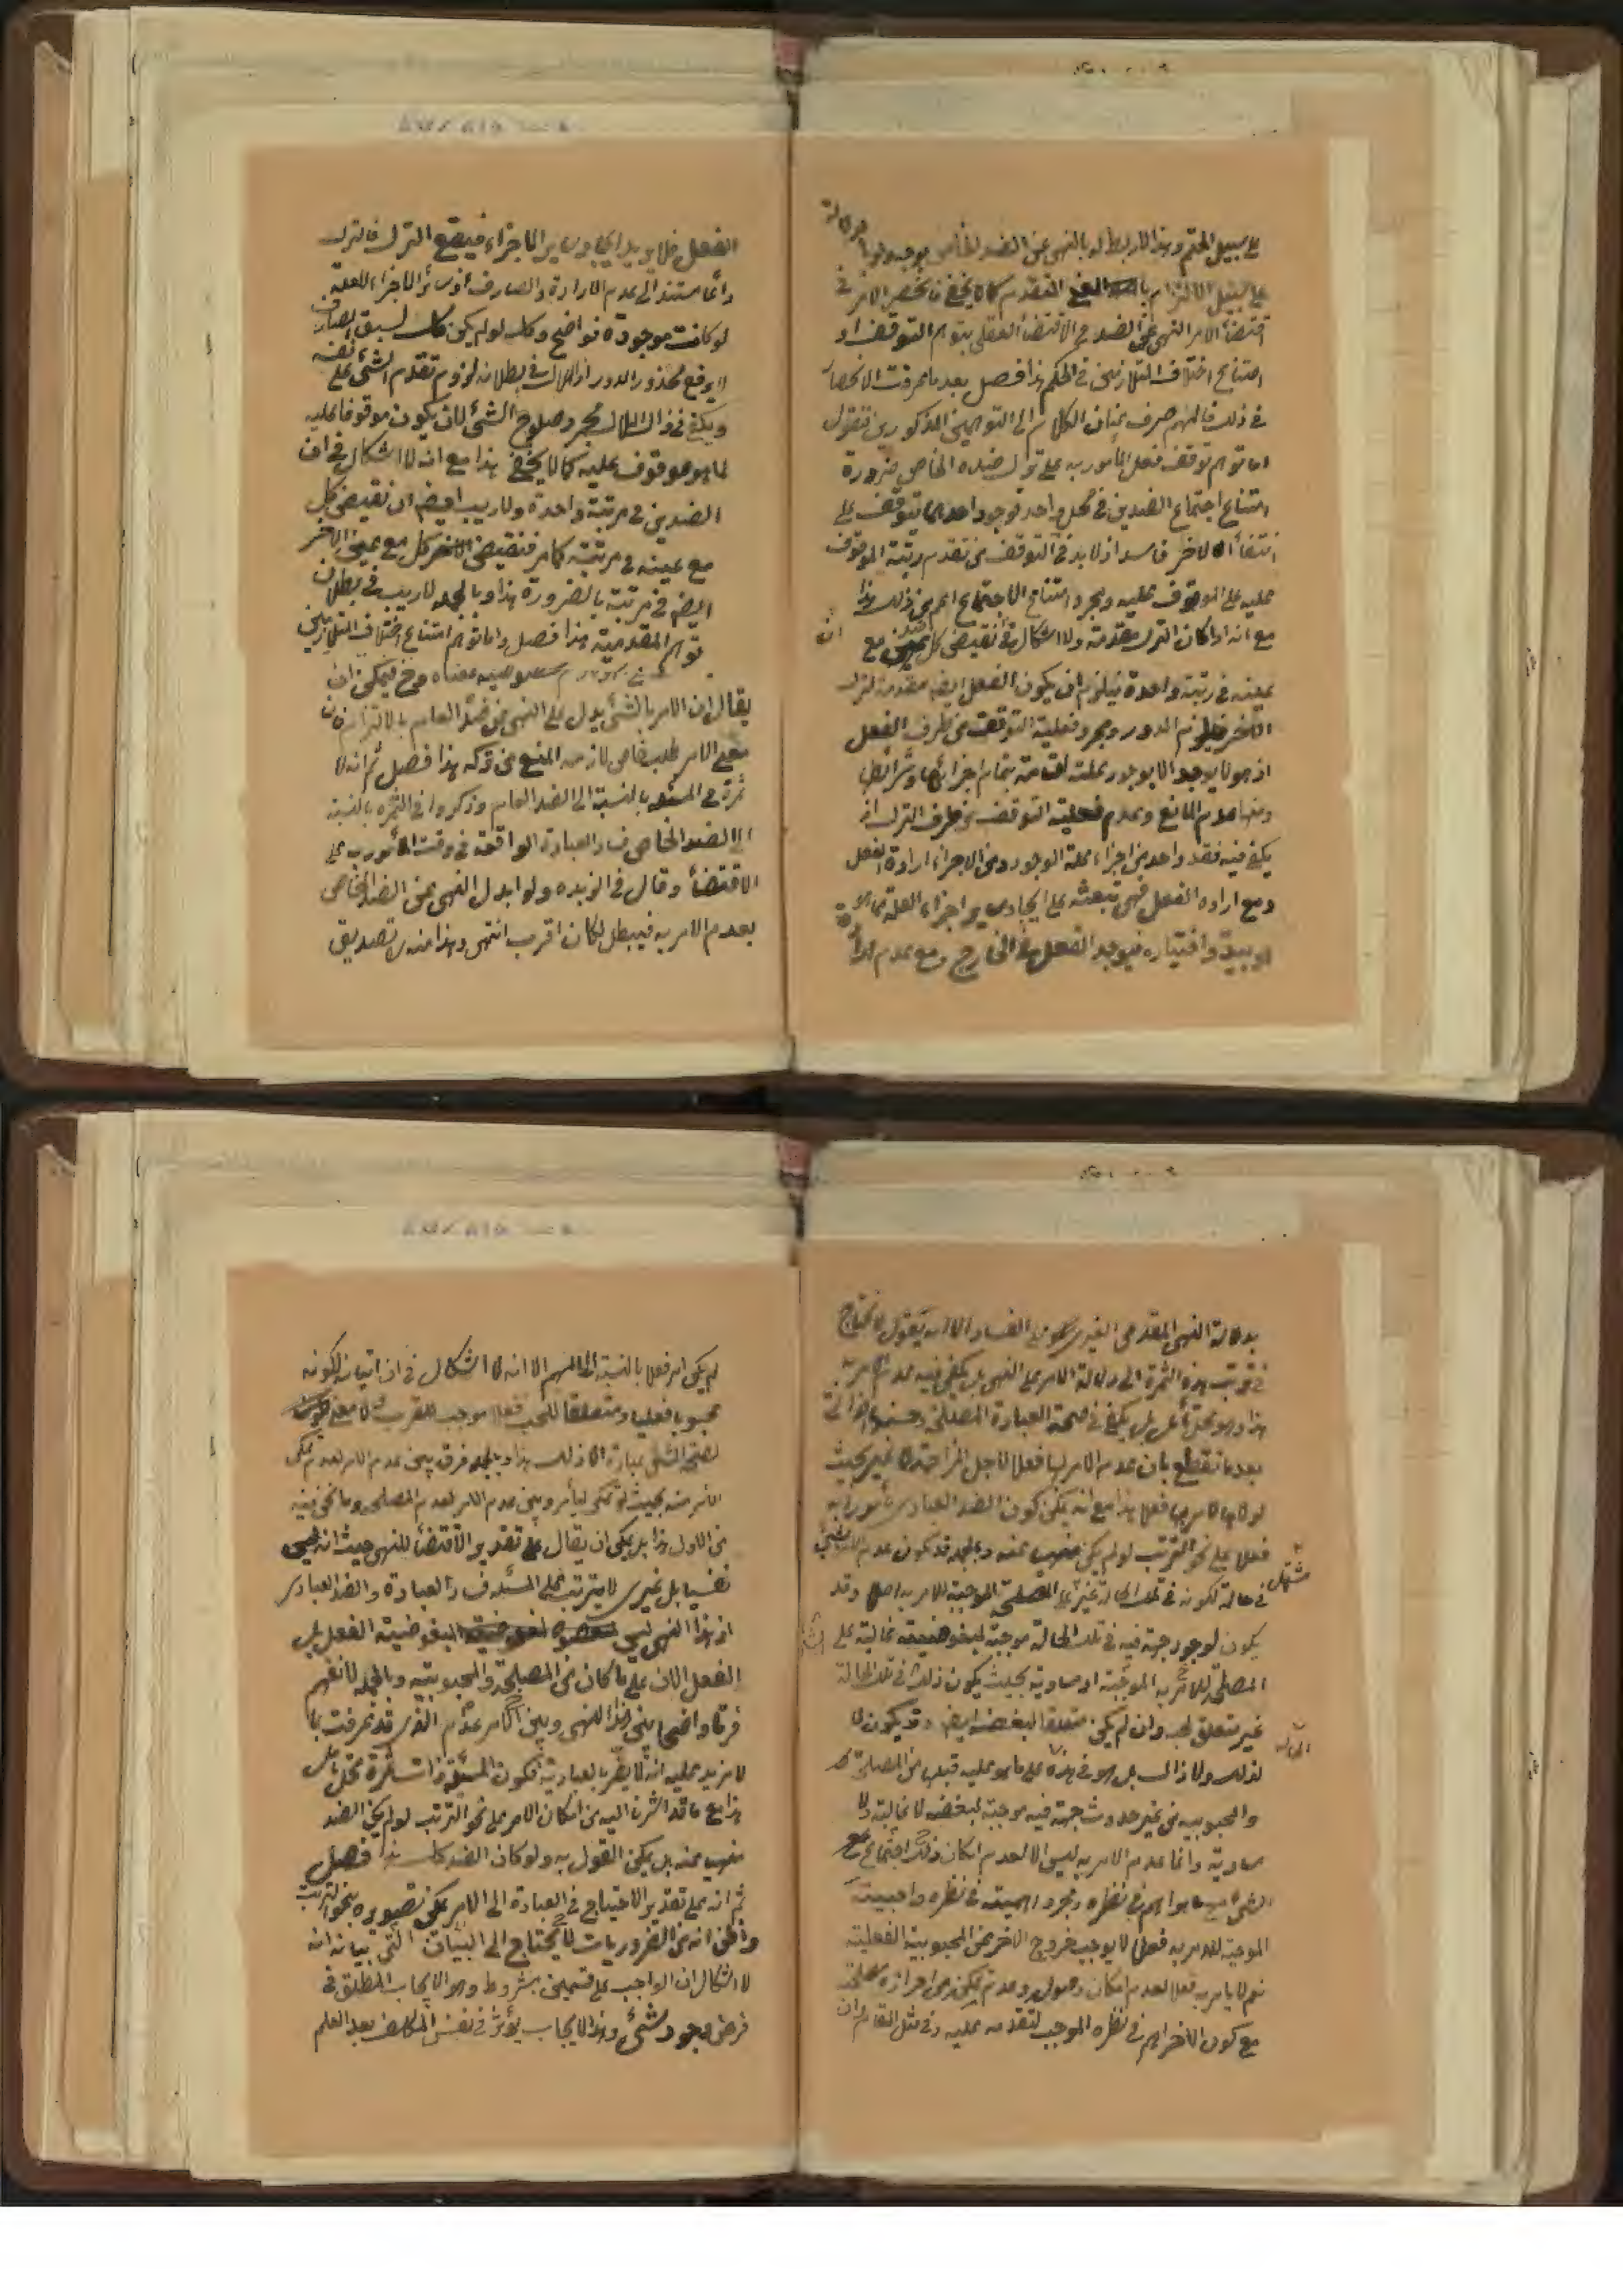 على سبيل الحتم وهذا لا ربط له بالنهي عن الضد الخاص بوجه ولو
على سبيل الالتزام بالمعنى المتقدم كما لا يخفى فانحصر الامر في
اقتضاء الامر النهي عن الضد في الاقتضاء العقلي بتوهم التوقف او
امتناع اختلاف المتلازمين في الحكم هذا فصل بعد ما عرفت الانحصار
في ذلك فالمهم صرف عنان الكلام الى التوهمين المذكورين فنقول
اما توهم توقف فعل المأمور به على ترك ضده الخاص ضرورة
امتناع اجتماع الضدين في محل واحد فوجود احدهما يتوقف على
انتفاء الاخر فاسد اذ لا بد في التوقف من تقدم رتبة الموقوف
عليه على الموقوف عليه ومجرد امتناع الاجتماع اعم من ذلك هذا
مع انه اذا كان الترك مقدمة ولا اشكال في ان نقيض كل ضد مع
عينه في رتبة واحدة فيلزم ان يكون الفعل ايضا مقدمة لترك
الاخر فيلزم الدور ومجرد فعلية التوقف من طرف الفعل
اذ هو لا يوجد الا بوجود علته التامة بتمام اجزائها وشرائطها
ومنها عدم المانع وعدم فعلية التوقف من طرف الترك اذ
يكفي فيه فقد واحد من اجزاء علة الوجود ومن الاجزاء ارادة الفعل
ومع ارادة الفعل فهي تبعثه على ايجاد سائر اجزاء العلة مما هو
بيده واختياره فيوجد الفعل في الخارج ومع عدم ارادة
الفعل فلا يريد ايجاد سائر الاجزاء فيقع الترك فالترك
دائما مستند الى عدم الارادة والصارف اذ سائر الاجزاء للعلة
لو كانت موجودة فواضح وكذلك لو لم يكن كذلك لسبق الصارف
لا يرفع محذور الدور اذ الملاك في بطلانه لزوم تقدم الشئ على نفسه
ويكفي في ذلك الملاك مجرد صلوح الشئ لان يكون موقوفا عليه
لما هو موقوف عليه كما لا يخفى هذا مع انه لا اشكال في ان
الضدين في مرتبة واحدة ولا ريب ايضا ان نقيض كل
مع عينه في مرتبة كما مر فنقيض كل مع عين الاخر
ايضا في مرتبة بالضرورة هذا وبالجملة لا ريب في بطلان
توهم المقدمية هذا فصل واما توهم امتناع اختلاف المتلازمين
يقال ان الامر بالشئ يدل على النهي عن ضده العام بالالتزام فان
معنى الامر طلب خاص لازمه المنع عن تركه هذا فصل ثم انه لا
ثمرة في المسئلة بالنسبة الى الضد العام وذكروا في الثمرة بالنسبة
الى الضد الخاص فساد العبادة الواقعة في وقت المأمور به على
الاقتضاء وقال في الزبده ولو ابدل النهي عن الضد الخاص
بعدم الامر به فيبطل لكان اقرب انتهى وهذا منه تصديق
بدلالة النهي المقدمي الغيري على الفساد الا انه يقول لا نحتاج
في ترتب هذه الثمرة الى دلالة الامر على النهي بل يكفي فيه عدم الامر به
هذا وهو محل تأمل بل يكفي في صحة العبادة المصلحة وحسنها الذاتي
بعد ما نقطع بان عدم الامر بها فعلا لاجل المزاحمة لا غير بحيث
لولاها لامر بها فعلا هذا مع انه يمكن كون الضد العبادي مأمورا به
فعلا على نحو الترتب لو لم يكن منهيا عنه وبالجملة قد يكون عدم الامر بشئ
في حالة لكونه في تلك الحالة غير مشتمل على المصلحة الموجبة للامر به اصلا وقد
يكون لوجود جهة فيه في تلك الحالة موجبة لمبغوضيته غالبة على
المصلحة الموجبة للامر به او مساوية بحيث يكون ذلك في تلك الحالة
غير متعلق لحب وان لم يكن متعلقا لبغضه ايضا وقد يكون لا
لذلك ولا ذاك بل هو في هذه الحالة على ما هو عليه قبلها من المصلحة
والمحبوبية من غير حدوث جهة فيه موجبة لبغضه لا غالبة ولا
مساوية وانما عدم الامر به ليس الا لعدم امكان ذلك لاجتماعه مع
ما هو اهم في نظره ومجرد اهميته في نظره واحبيته
الموجبة للامر به فعلا لا يوجب خروج الاخر عن المحبوبية الفعلية
نعم لا يأمر به فعلا لعدم امكان وصوله وعدم تمكن من احراز مصلحته
مع كون الاخر اهم في نظره الموجب لتقدمه عليه وفي مثل المقام وان
لم يكن امر فعلا بالنسبة الى المهم الا انه لا اشكال في ان اتيانه لكونه
محبوبا فعليا ومتعلقا للحب فعلا موجب للقرب ولا معنى
لصحة الشئ عبادة الا ذلك هذا وبالجملة فرق بين عدم الامر لعدم تمكن
الآمر منه بحيث لو تمكن ليأمر وبين عدم الامر لعدم المصلحة وما نحن فيه
من الاول هذا بل يمكن ان يقال على تقدير الاقتضاء للنهي حيث انه ليس
نفسيا بل غيري لا يترتب على المسئلة فساد العبادة والضد العبادي
اذ هذا النهي ليس لمبغوضية الفعل بل
الفعل الان على ما كان من المصلحة والمحبوبية وبالجملة لا نفهم
فرقا واضحا بين هذا النهي وبين عدم الامر الذي قد عرفت بما
لا مزيد عليه انه لا يضر بالعبادية فكون المسئلة ذات ثمرة محل تأمل
هذا مع ما قد اشرنا اليه من امكان الامر على نحو الترتب لو لم يكن الضد
منهيا عنه بل يمكن القول به ولو كان الضد كذلك هذا فصل
ثم انه على تقدير الاحتياج في العبادة الى الامر يمكن تصويره بنحو الترتب
واظن انه من الضروريات لا يحتاج الى البيان التي بيانه انه
لا اشكال ان الواجب على قسمين مشروط وهو الايجاب المطلق في
فرض وجود شئ وهذا الايجاب يؤثر في نفس المكلف بعد العلم